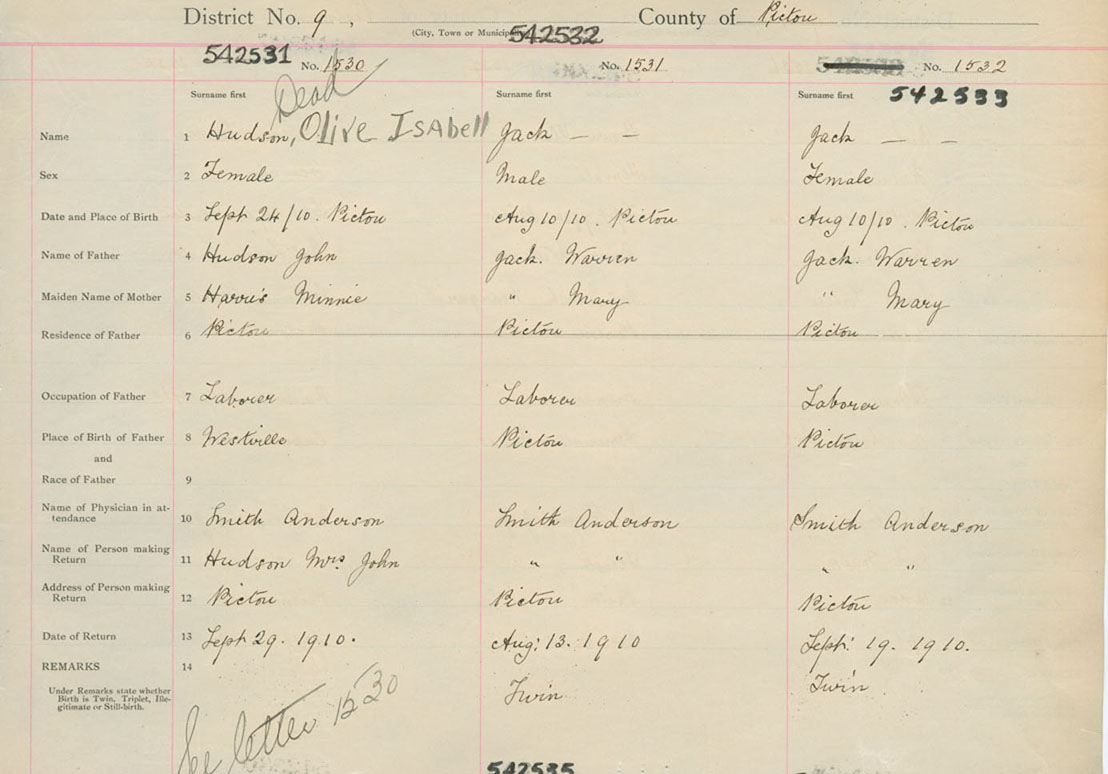 District No. 9, County of Pictou
(City, Town or Municip
542532
542531 No. 1530 No. 1531 No. 1532
Dead
Surname first Surname first Surname first 542533
Name 1 Hudson, Olive Isabell Jack — — Jack — —
Sex 2 Female Male Female
Date and Place of Birth 3 Sept 24/10. Pictou Aug 10/10. Pictou Aug 10/10. Pictou
Name of Father 4 Hudson John Jack. Warren Jack. Warren
Maiden Name of Mother 5 Harris Minnie " Mary " Mary
Residence of Father 6 Pictou Pictou Pictou
Occupation of Father 7 Laborer Laborer Laborer
Place of Birth of Father 8 Westville Pictou Pictou
and
Race of Father 9
Name of Physician in at-
tendance 10 Smith Anderson Smith Anderson Smith Anderson
Name of Person making
Return 11 Hudson Mrs John " " " "
Address of Person making
Return 12 Pictou Pictou Pictou
Date of Return 13 Sept 29. 1910. Aug: 13. 1910 Sept: 19. 1910.
REMARKS 14
Under Remarks state whether
Birth is Twin, Triplet, Ille-
gitimate or Still-birth. Twin Twin
See letter 1530
542535